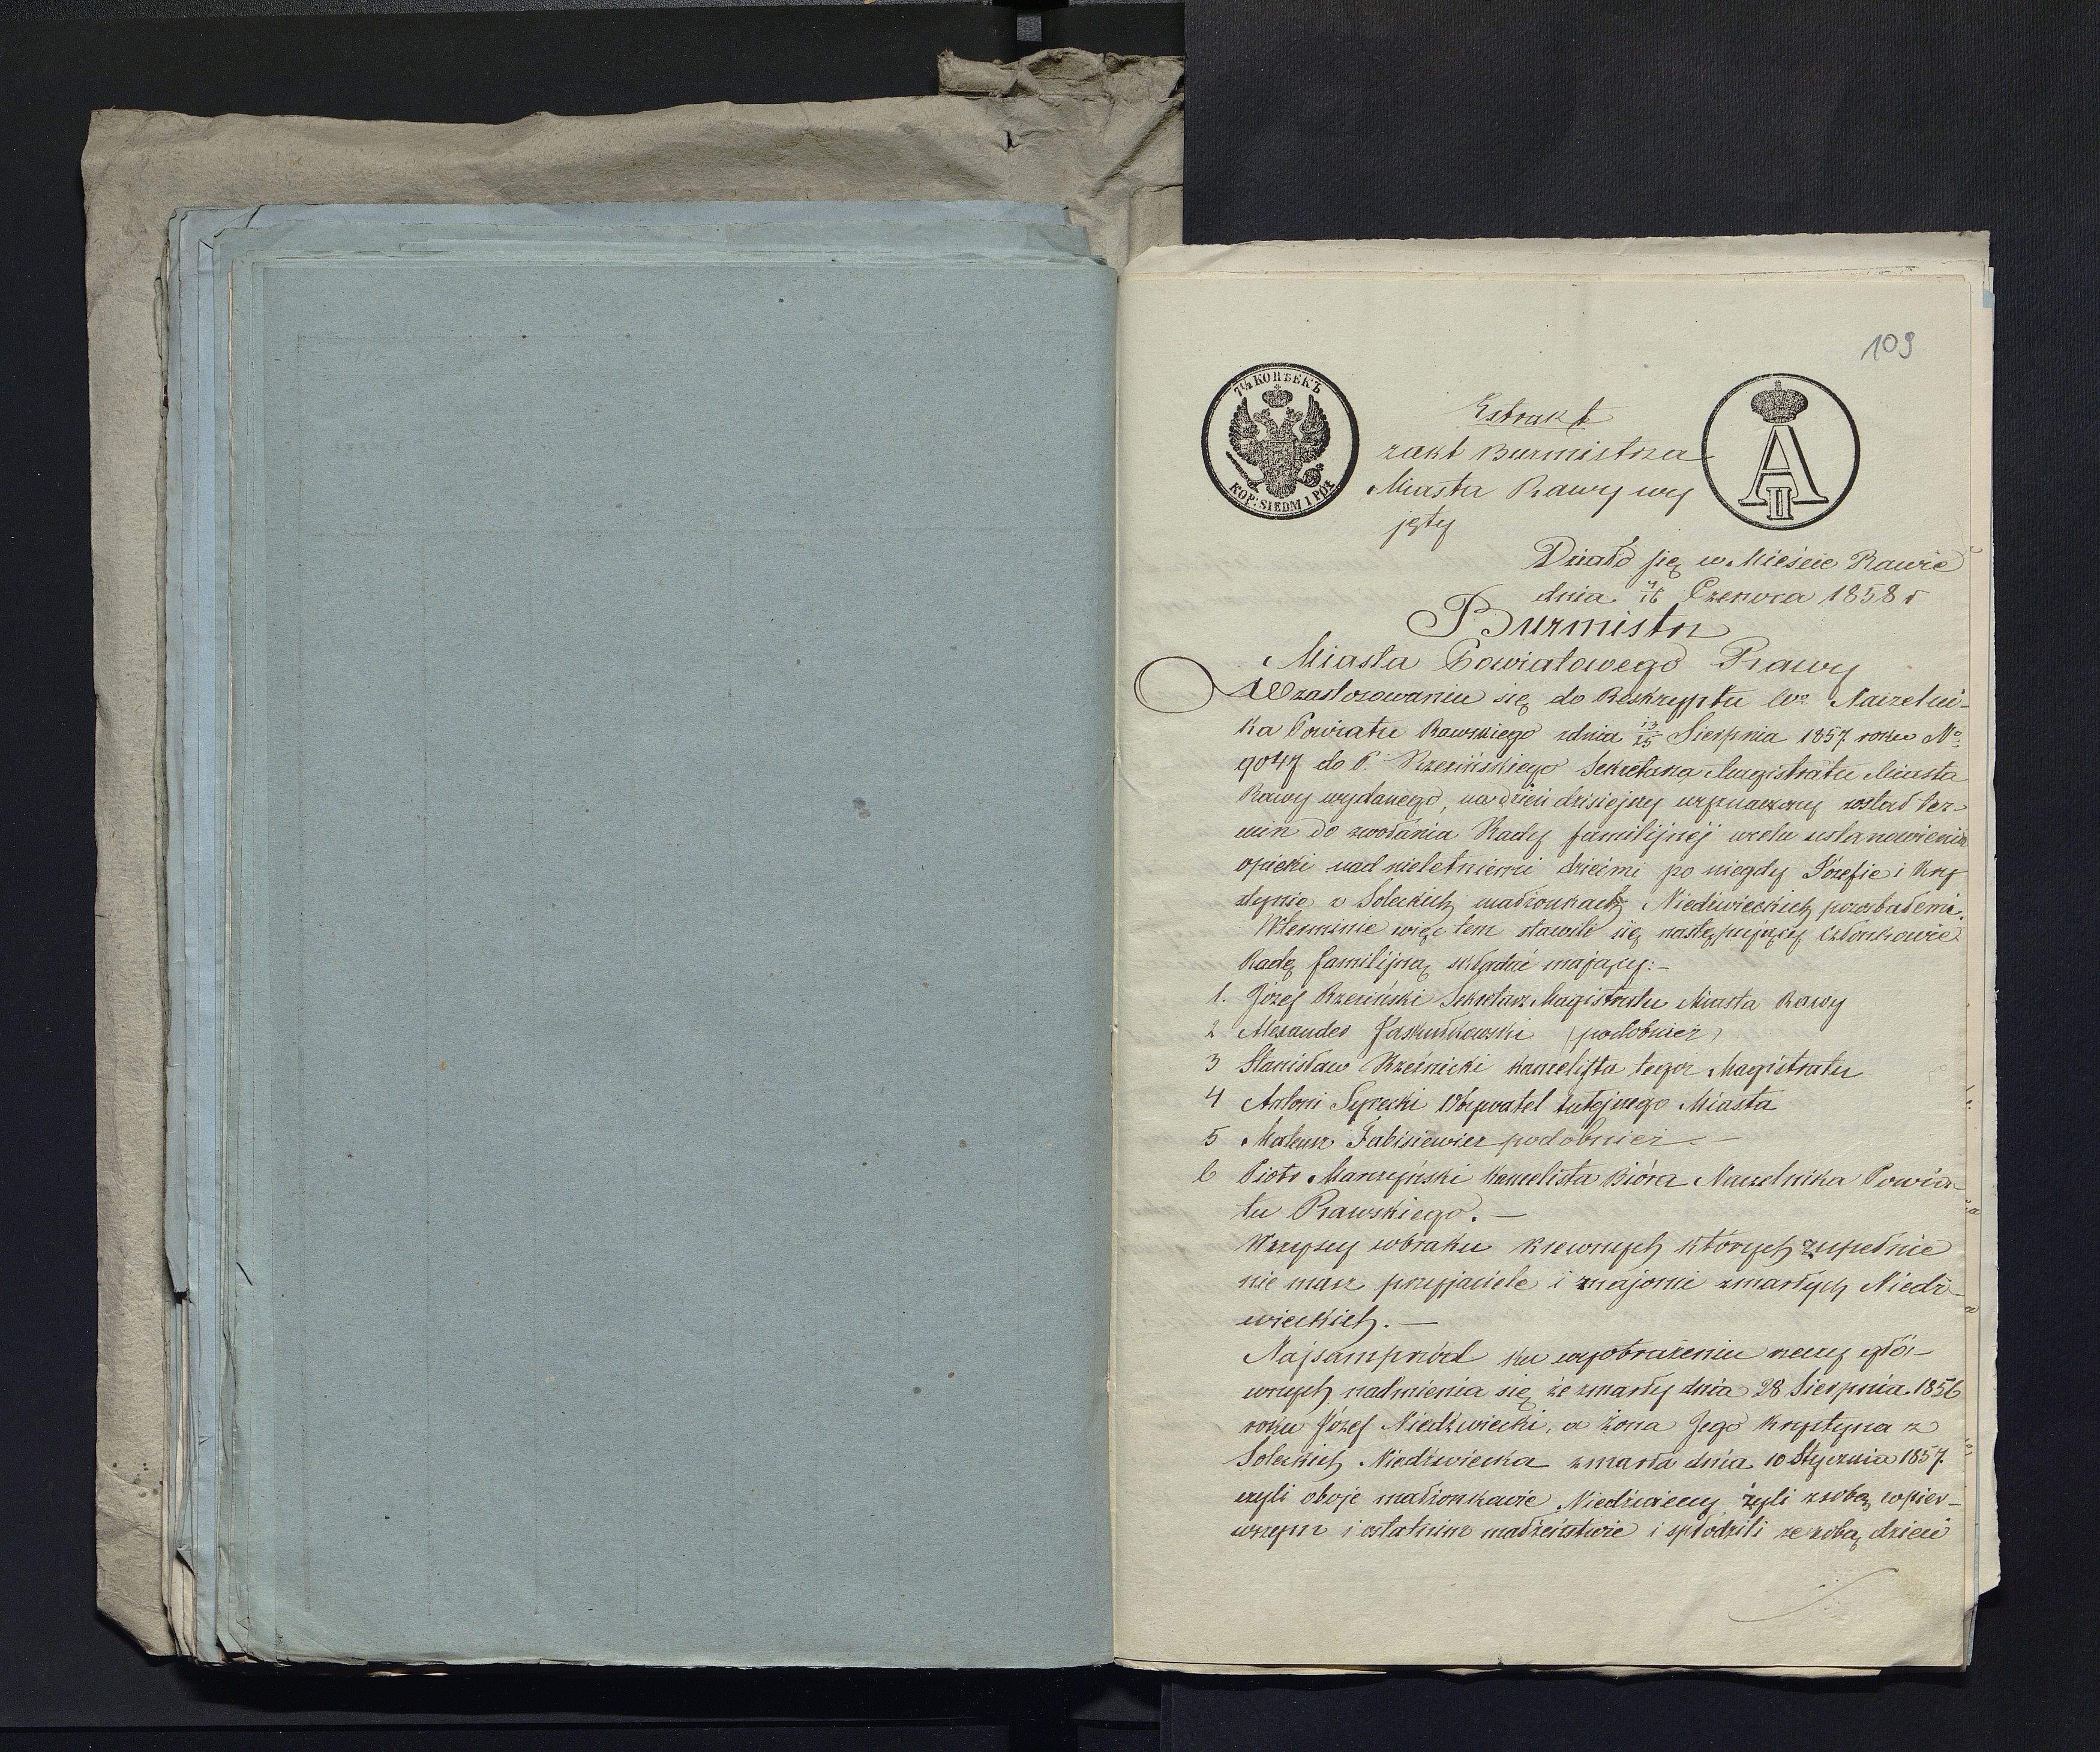 109
7½ КОПѢЕКЪ
KOP: SIEDM I PÓŁ
A II
Extrakt
z akt Burmistrza
Miasta Rawy wy
jęty
Działo się w Mieście Rawie
dnia 4/16 Czerwca 1858 r
Burmistrz
Miasta Powiatowego Rawy
W zastosowaniu się do Reskryptu Wo Naczelni-
ka Powiatu Rawskiego z dnia 13/25 Sierpnia 1857 roku No
9047 do P. Rzesińskiego Sekretarza Magistratu Miasta
Rawy wydanego, na dzień dzisiejszy wyznaczony został ter-
min do zwołania Rady familijnéj w celu ustanowienia
opieki nad nieletniemi dziećmi po niegdy Józefie i Kry
stynie z Soleckich małżonkach Niedźwieckich pozostałemi.
W terminie więc tem stawili się następujący członkowie
Radę familijną składać mający:-
1. Józef Rzesiński Sekretarz Magistratu Miasta Rawy
2 Alexander Jaskułkowski (podobnież)
3 Stanisław Rzeźnicki kancelista tegoż Magistratu
4 Antoni Syrecki Obywatel tutejszego Miasta
5 Mateusz Fabisiewicz podobnież. —
6 Piotr Marczyński kancelista Bióra Naczelnika Powia-
tu Rawskiego. —
Wszyscy w braku krewnych których zupełnie
nie masz przyjaciele i znajomi zmarłych Niedź-
wieckich. —
Najsamprzód ku wyobrażeniu rzeczy głó-
wnych nadmienia się że zmarły dnia 28 Sierpnia 1856
roku Józef Niedźwiecki, a żona Jego Krystyna z
Soleckich Niedźwiecka zmarła dnia 10 Stycznia 1857.
czyli oboje małżonkowie Niedźwieccy żyli z sobą w pier-
wszym i ostatnim małżeństwie i spłodzili ze sobą dzieci